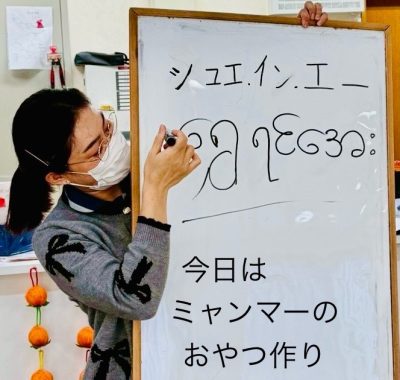 シュエ.イン.エー
ရွှေရင်အေး
今日は
ミャンマーの
おやつ作り